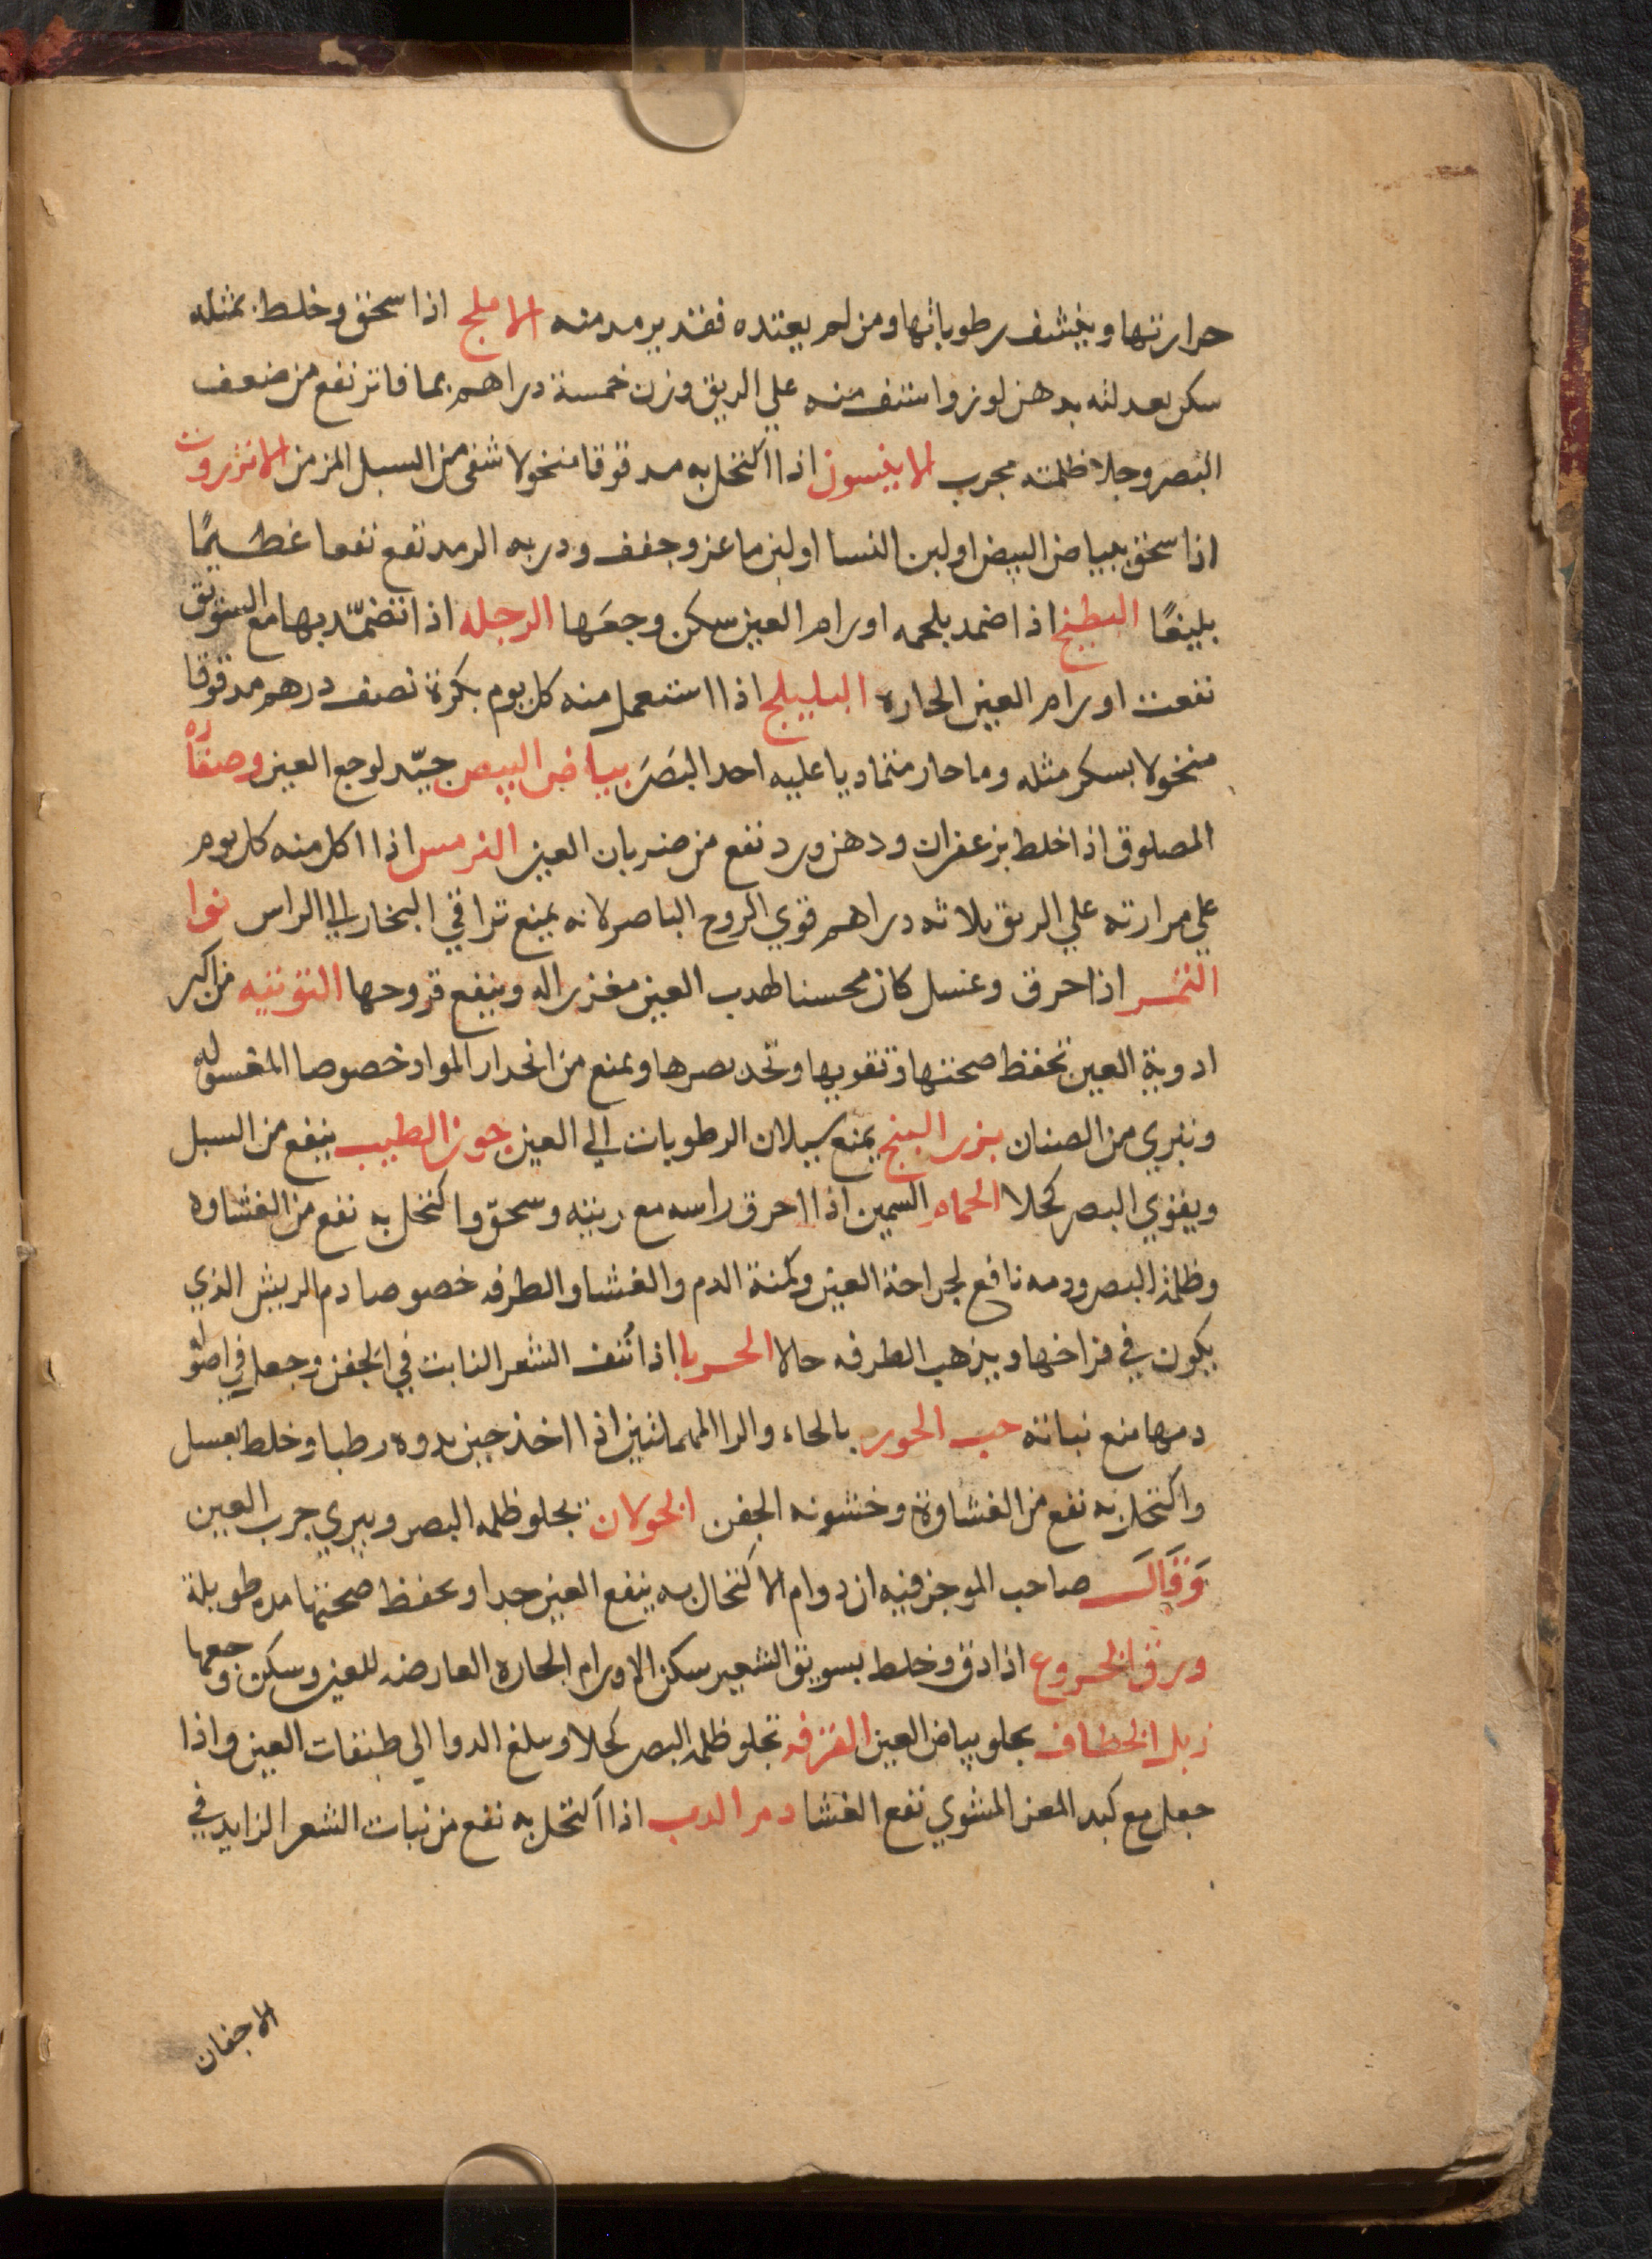 حرارتها وينشف رطوباتها ومن لم يعتده فقد يرمد منه الاملج اذا سحق وخلط بمثله
سكر بعد لته بدهن لوز واستف منه علي الريق وزن خمسة دراهم بما فاتر نفع من ضعف
البصر وجلا ظلمته مجرب الانيسون اذا اكتحل به مدقوقا منخولا شفى من السبل المزمن الانزروت
اذا سحق ببياض البيض او لبن النسا او لبن ماعز وجفف ودر به الرمد نفع نفعا عظيمًا
بليغًا البطيخ اذا ضمد بلحمه اورام العين سكن وجعَها الرجله اذا تضمّد بها مع السويق
نفعت اورام العين الحاره البليلج اذا استعمل منه كل يوم بكرة نصف درهم مدقوقا
منخولا بسكر مثله وما حار متماديا عليه احد البصَر بياض البيض جيّد لوجع العين وصفاره
المصلوق اذا خلط بزعفران ودهن ورد نفع من ضربان العين الترمس اذا اكل منه كل يوم
علي مرارته علي الريق ثلاثه دراهم قوي الروح الباصر لانه يمنع تراقي البخار الي الراس نوا
التمر اذا حرق وغسل كان محسنا لهدب العين مغزرا له وينفع قروحها التوتيه من اكبر
ادوية العين تحفظ صحتها وتقويها وتحد بصرها وتمنع من انحدار المواد خصوصا المغسوله
وتبري من الصنان بزر البنج يمنع سيلان الرطوبات الي العين جوز الطيب ينفع من السبل
ويقوي البصر كحلا الحمام السمين اذا احرق راسه مع ريشه وسحق واكتحل به نفع من الغشاوه
وظلمة البصر ودمه نافع لجراحة العين وكمنة الدم والغشا والطرفه خصوصا دم الريش الذي
يكون في فراخها ويذهب الطرفه حالا الحربا اذا نُتف الشعر النابت في الجفن وجعل في اصوله
دمها منع نباته حب الحور بالحاء والرا المهملتين اذا اخذ حين بدوه رطبا وخلط بعسل
واكتحل به نفع من الغشاوة وخشونه الجفن الخولان يجلو ظلمه البصر ويبري جرب العين
وَقَالَ صاحب الموجز فيه ان دوام الاكتحال به ينفع العين جدا وحفظ صحتها مده طويلة
ورق الخروع اذا دق وخلط بسويق الشعير سكن الاورام الحاره العارضه للعين وسكن وجعها
زبل الخطاف يجلو بياض العين القرفه تجلو ظلمة البصر كحلا وبلغ الدوا الي طبقات العين واذا
جعل مع كبد المعز المشوي نفع الغشا دم الدب اذا اكتحل به نفع من نبات الشعر الزايد في
الاجفان